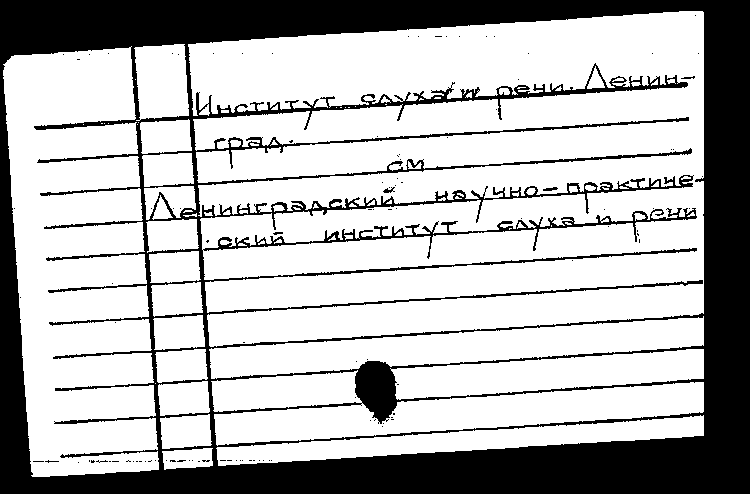 Институт слуха и речи. Ленин-
град.
см
Ленинградский научно-практиче-
ский институт слуха и речи